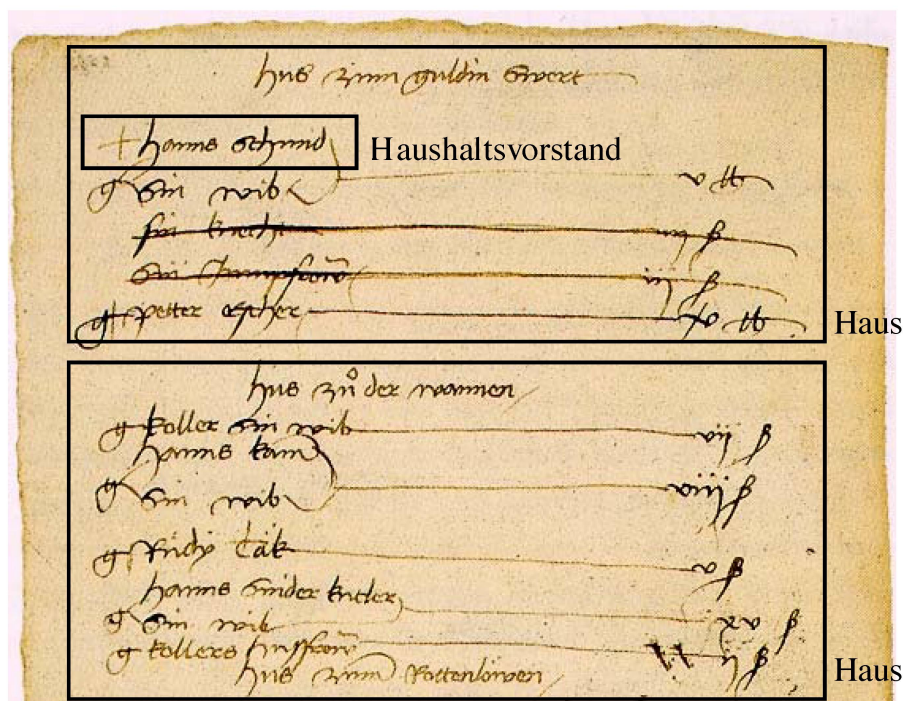 hus zum guldin swert
+ hanns schmid
Haushaltsvorstand
g sin wib v lb
sin knecht iij ß
sin Jumpfrow iij ß
g petter escher xv lb
Haus
hus zů der wannen
g koller sin wib vij ß
hanns kam
g sin wib viiij ß
g Rudy v ß
hanns snider
g sin wib xv ß
g kollers husfrow ij ß
hus zum Rottenlöwen
Haus